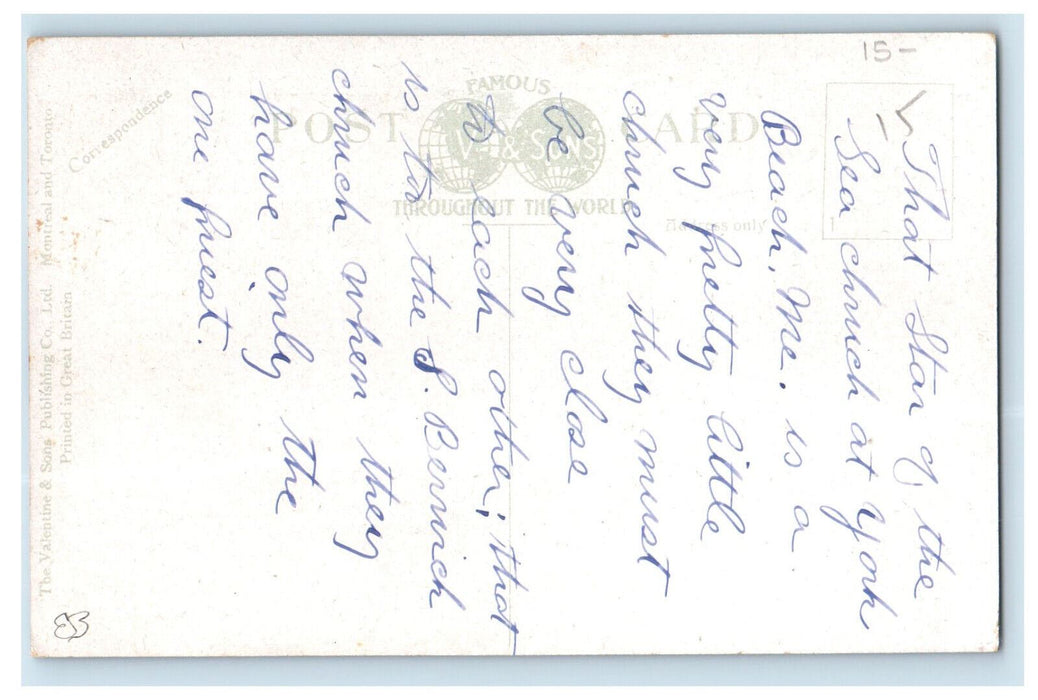 15-
POST CARD
FAMOUS
V. & SONS
THROUGHOUT THE WORLD
Correspondence
Address only
The Valentine & Sons Publishing Co., Ltd. Montreal and Toronto
Printed in Great Britain
That Star of the
Sea church at York
Beach, Me. is a
very pretty little
church they must
be very close
to each other; that
is to the S. Berwick
church when they
have only the
one priest.